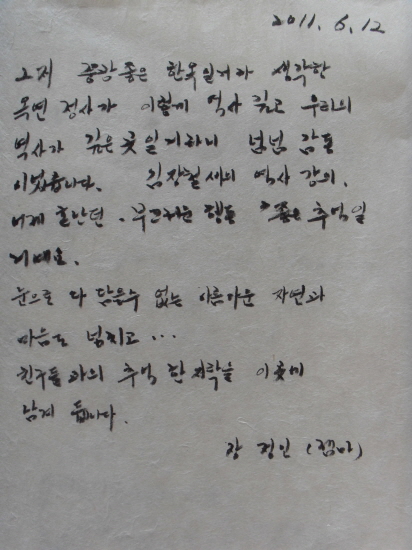 2011. 6. 12
그저 풍광좋은 한옥일거라 생각한
옥연 정사가 이렇게 역사 깊고 우리의
역사가 깊은 곳일거라니 넘넘 감동
이었습니다. 김장철씨의 역사 강의.
혼난던. 부끄러운 행동 좋은 추억일
거예요.
눈으로 다 담을수 없는 아름다운 자연과
마음도 넘치고...
친구들과의 추억 한자락을 이곳에
남겨 둡니다.
장 정인